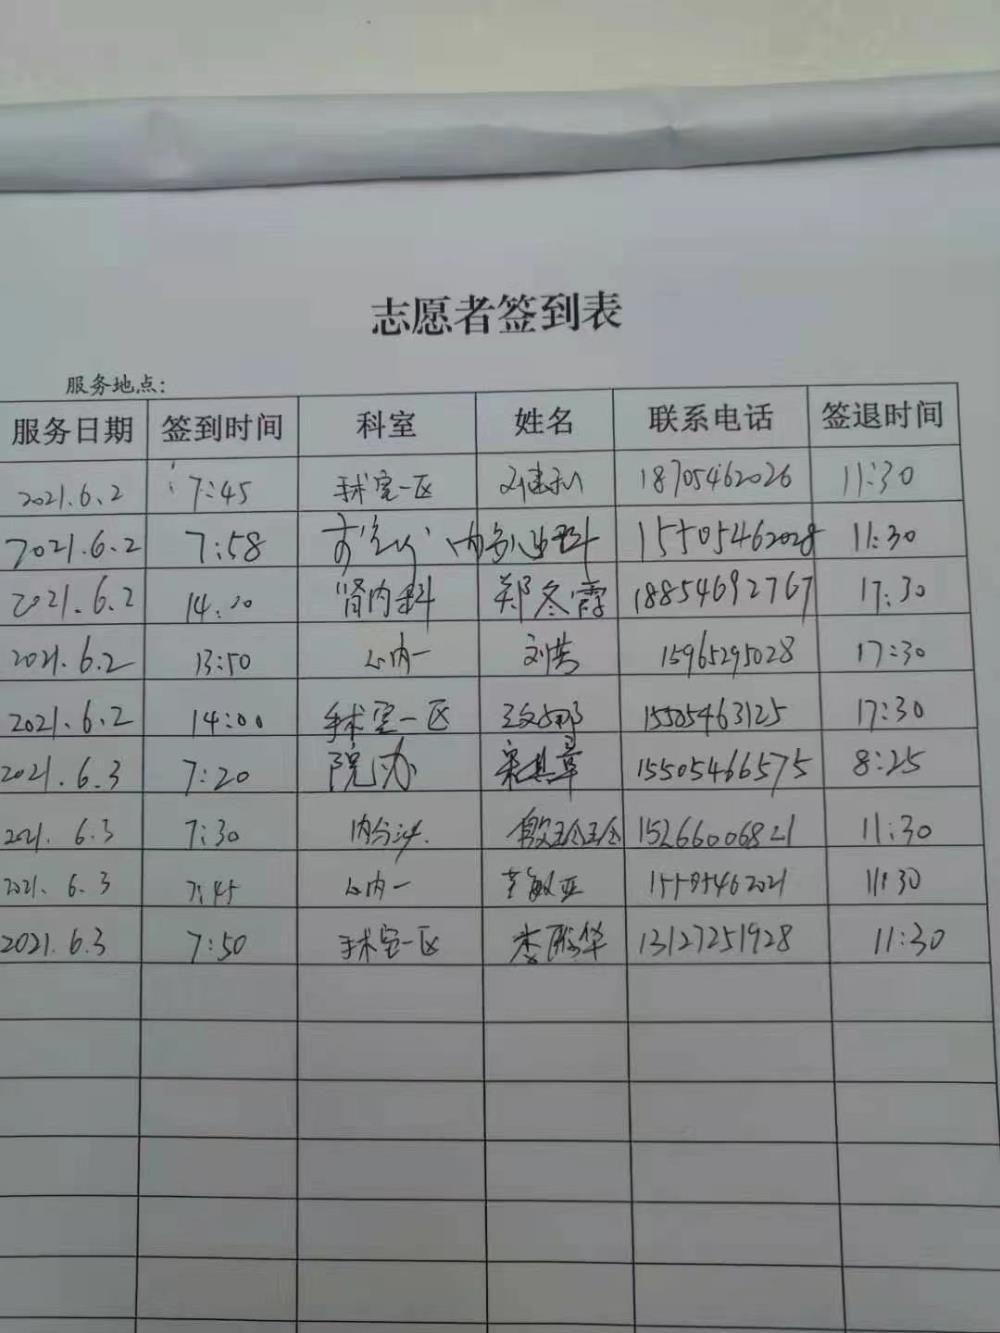 志愿者签到表
服务地点:
服务日期 签到时间 科室 姓名 联系电话 签退时间
2021.6.2 7:45 手术室一区 18705462026 11:30
2021.6.2 7:58 15505462028 11:30
2021.6.2 14:20 肾内科 郑冬霞 18854692767 17:30
2021.6.2 13:50 心内一 刘芸 15965295028 17:30
2021.6.2 14:00 手术室一区 15505463125 17:30
2021.6.3 7:20 院办 15505466575 8:25
2021.6.3 7:30 内分泌. 15266006821 11:30
2021.6.3 7:45 心内一 敏亚 15505462021 11:30
2021.6.3 7:50 手术室一区 13127251928 11:30